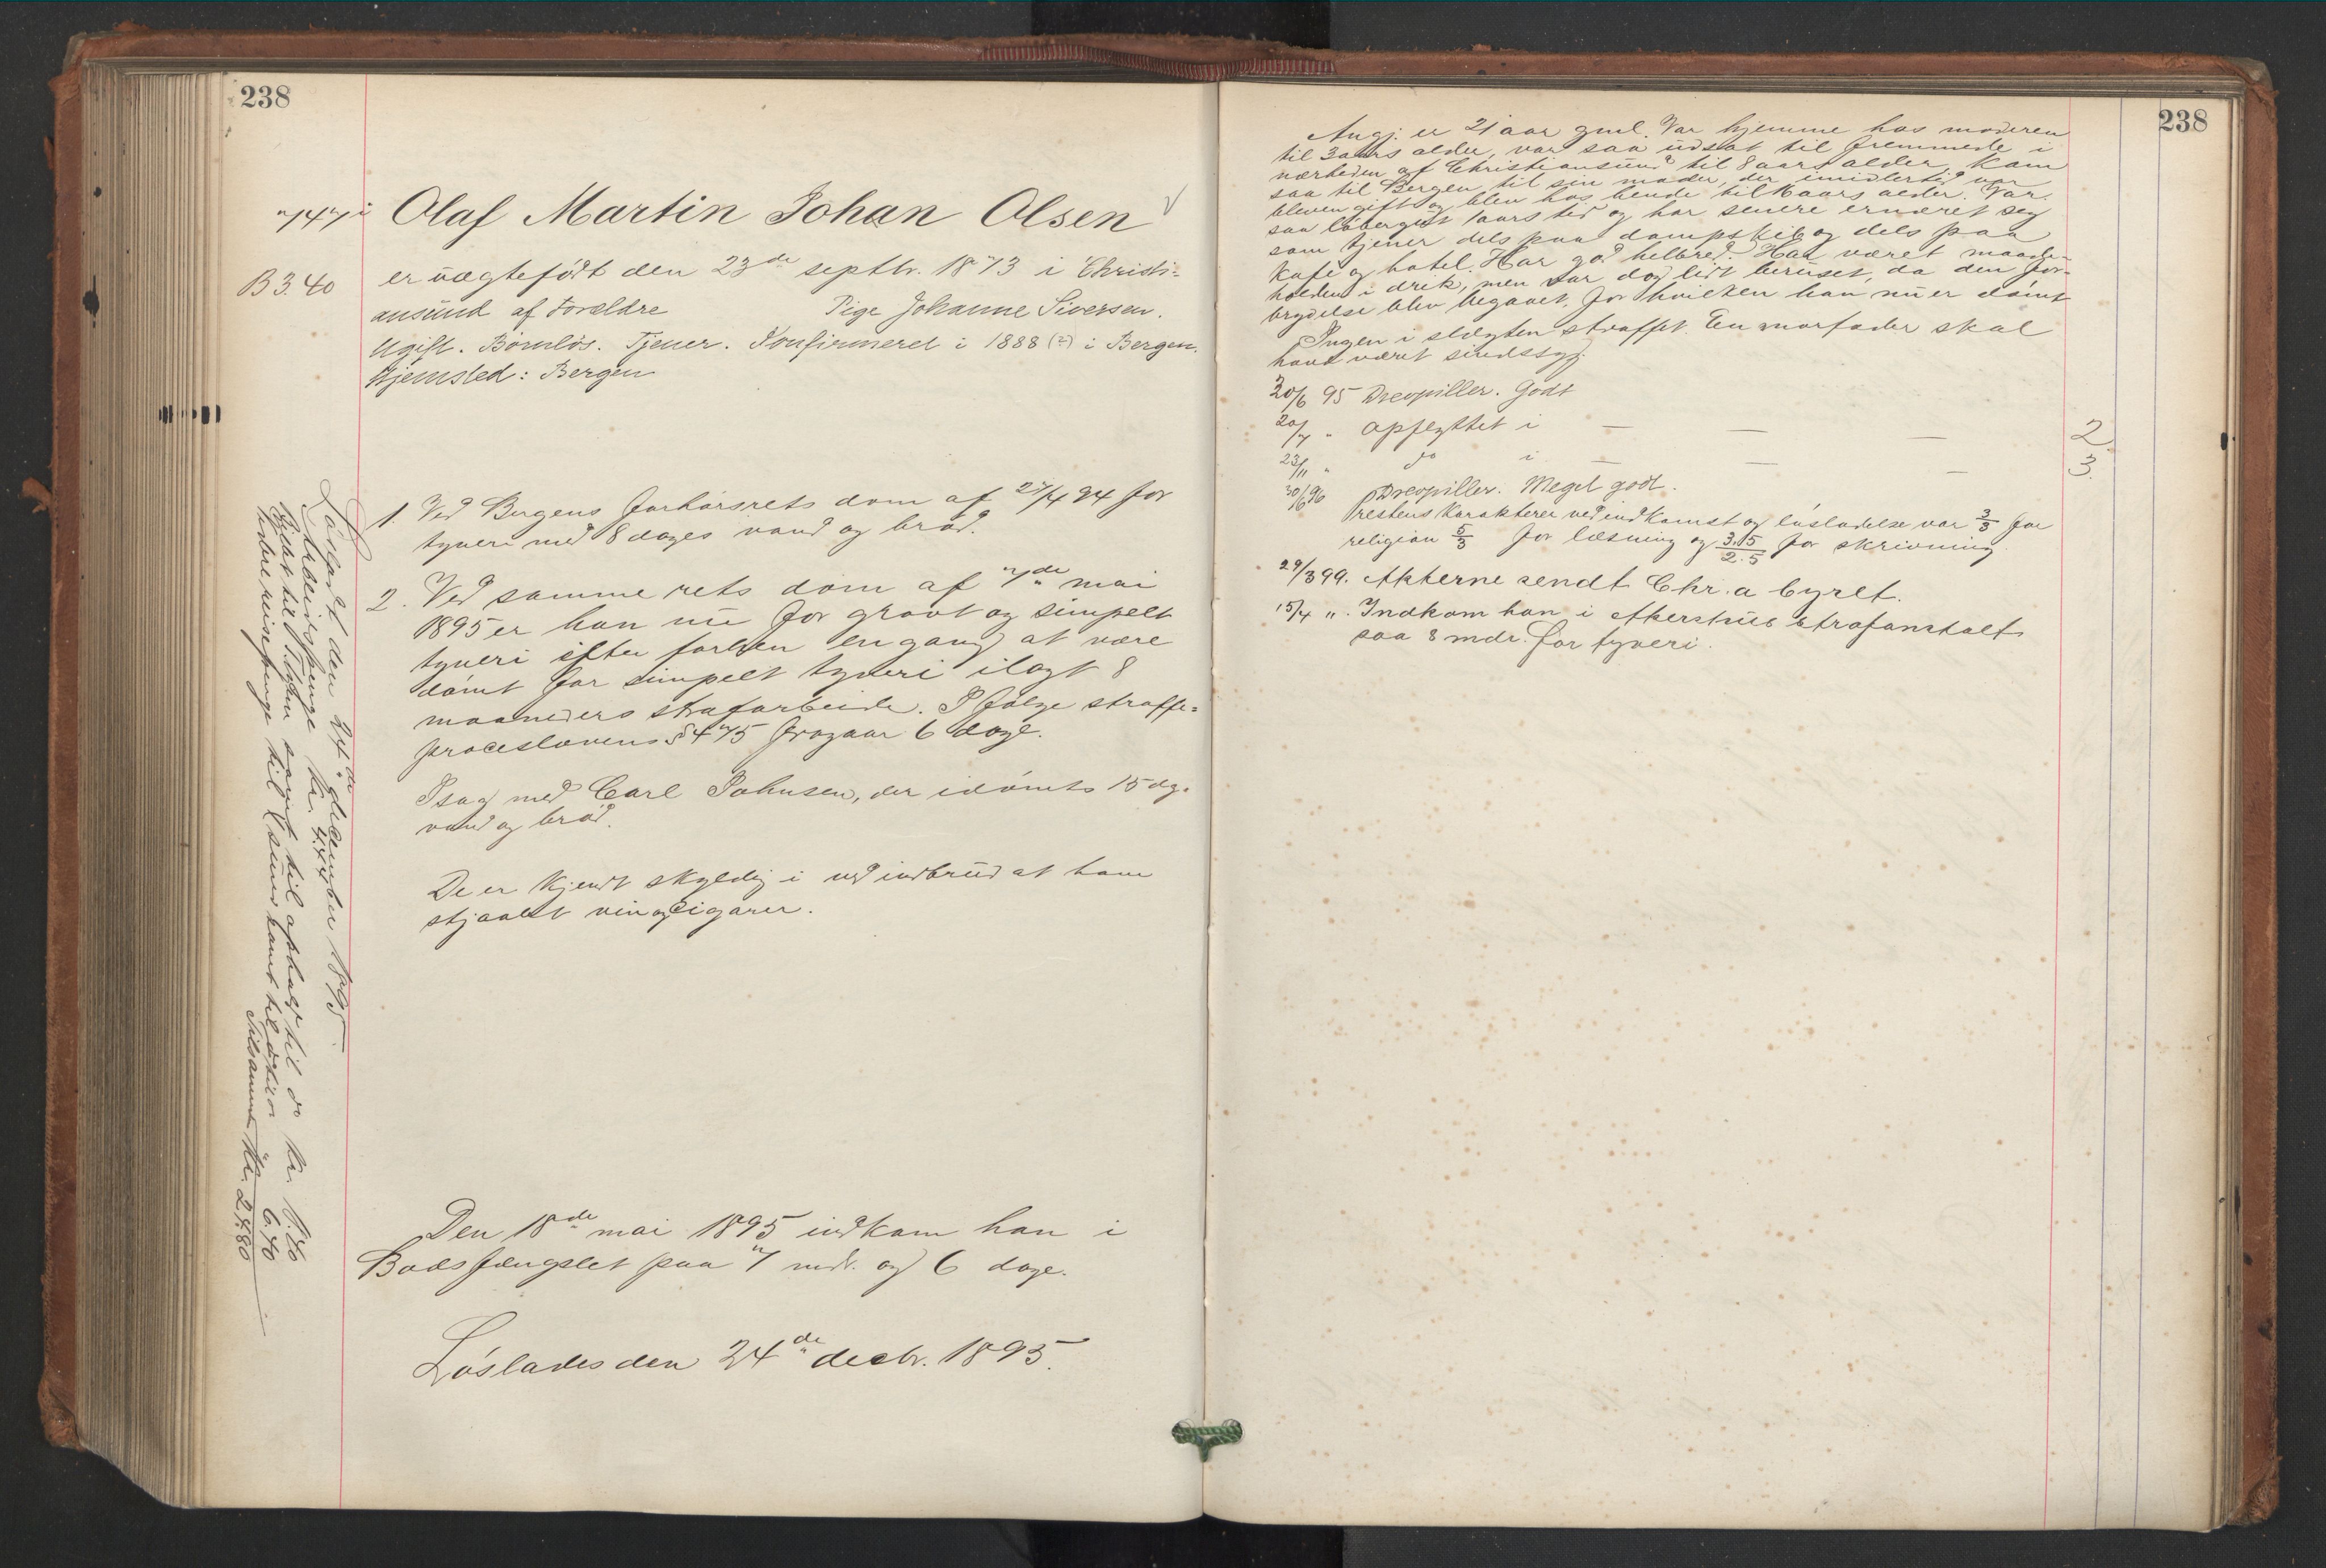 238
747
Olaf Martin Johan Olsen
B 3.40
er uægtefödt den 23de septbr. 1873 i Christi=
ansund af Forældre Pige Johanne Siversen.
Ugift. Börnlös. Tjener. Konfirmeret i 1888 (?) i Bergen.
Hjemsted: Bergen
1. Ved Bergens forhörsrets dom af 27/4 94 for
tyveri med 8 dages vand og bröd.
2. Ved samme rets dom af 7de mai
1895 er han nu for grovt og simpelt
tyveri efter forhen engang at være
dömt for simpelt tyveri ilagt 8
maaneders strafarbeide. I fölge straffe=
proceslovens § 475 fragaar 6 dage.
I sag med Carl Johnsen, der idömts 15 dg.
vand og bröd.
De er kjendt skyldig i ved indbrud at have
stjaalet vin og cigarer.
Den 18de mai 1895 indkom han i
Bodsfængslet paa 7 mdr. og 6 dage.
Löslades den 24de decbr. 1895.
Lösladt den 24de december 1895.
Arbeidspenge kr. 4.44
Billet til
til ophold til do kr.
reisepenge til 6.40
Tilsammen Kr. 24.80
238
Angj. er 21 aar gml. Var hjemme hos moderen
til 3 aars alder, var saa udsat til fremmede i
nærheden af Christiansund til 8 aars alder, kom
saa til Bergen til sin moder, der imidlertid var
bleven gift og blev hos hende til aars alder. Var
saa löbergut 1 aars tid og har senere ernæret seg
som tjener dels paa dampskib og dels paa
kafe og hotel. Har god helbred. Har været maade=
holden i drik, men var dog lidt beruset, da den for=
brydelse blev begaaet, for hvilken han nu er dömt
Ingen i slægten straffet. En morfader skal
have været sindssyg.
30/6 95 Dreopiller. Godt
20/7 " Opflyttet i — — — 2.
23/11 " do i — — — 3.
30/6 96 Dreopiller. Meget godt.
Prestens karakterer ved indkomst og lösladelse var 3/3 for
religion 5/3 for læsning og 3.15/2.5 for skrivning.
29/3 99. Akterne sendt Chr.a byret.
15/4 ". Indkom han i Akershus strafanstalt
paa 8 mdr. for tyveri.